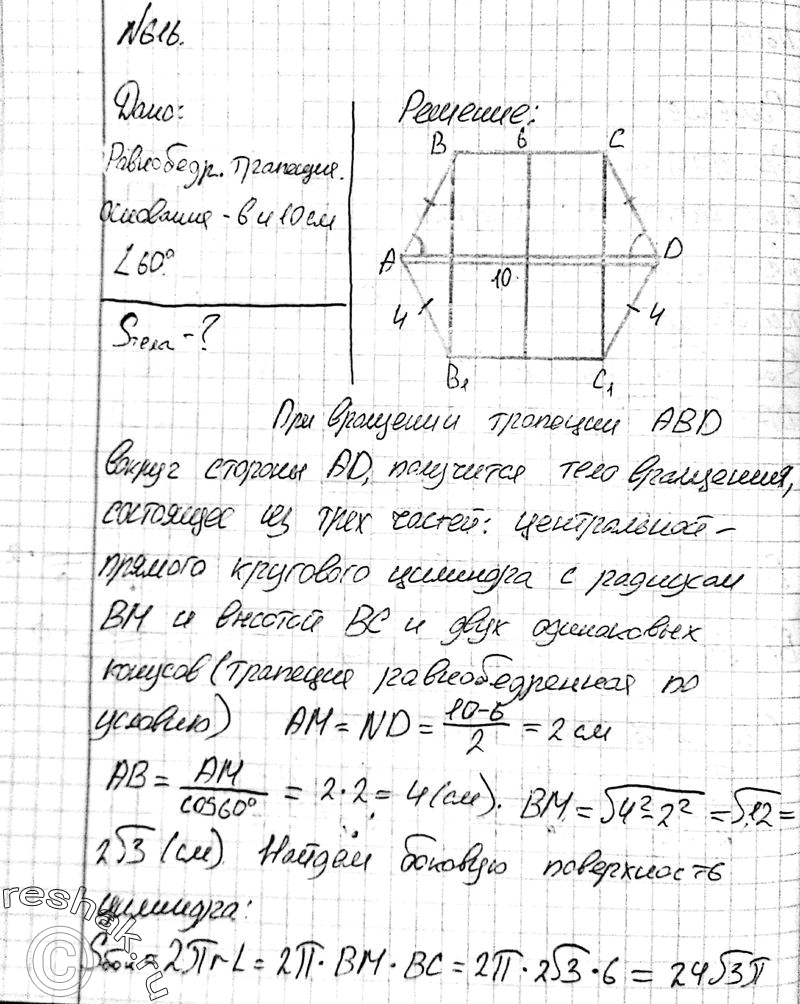 №616.
Дано:
Равнобедр. трапеция.
основания - 6 и 10 см
∠60°
Sтела - ?
Решение:
B 6 C
A D
10
4 4
B₁ C₁
При вращении трапеции ABD
вокруг стороны AD, получится тело вращения,
состоящее из трех частей: центральной -
прямого кругового цилиндра с радиусом
BM и высотой BC и двух одинаковых
конусов (трапеция равнобедренная по
условию) AM = ND = (10-6)/2 = 2 см
AB = AM/cos60° = 2·2 = 4 (см). BM = √(4²-2²) = √12 =
2√3 (см) Найдём боковую поверхность
цилиндра:
Sбок = 2πrL = 2π · BM · BC = 2π · 2√3 · 6 = 24√3π
© reshak.ru